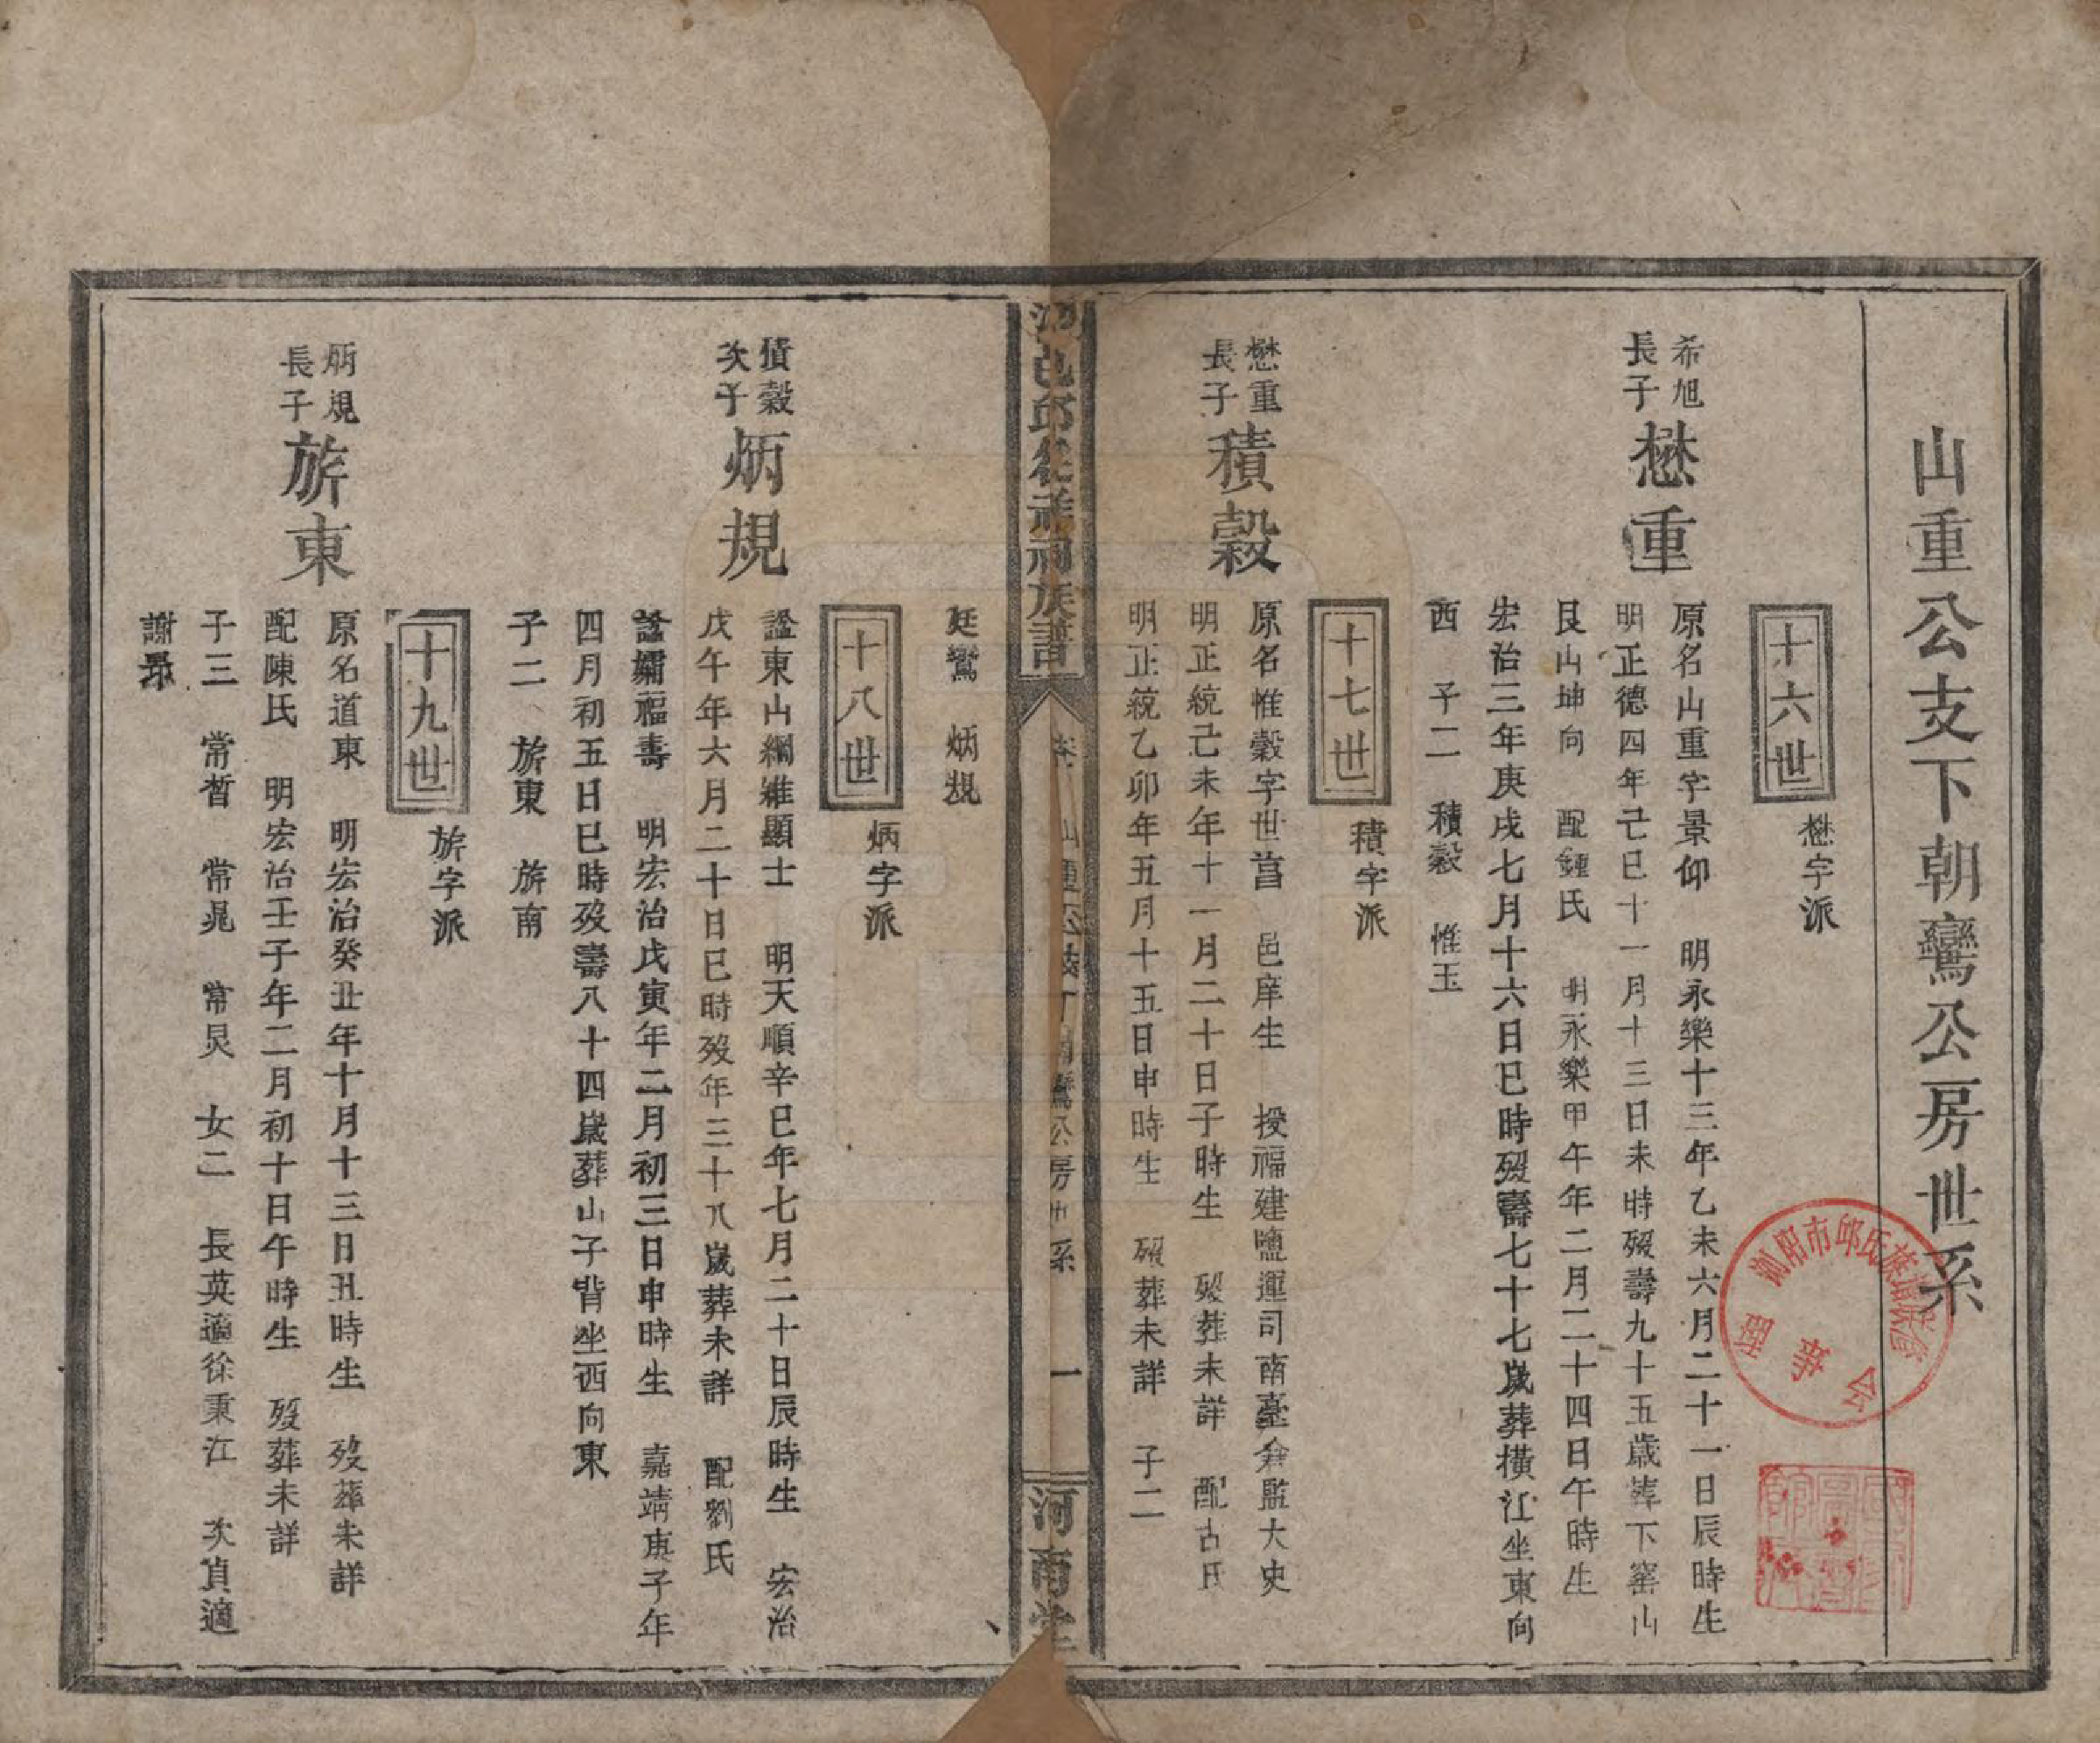 山重公支下朝鸞公房世系
十六世
懋字派
希旭
長子
懋重
原名山重字景仰 明永樂十三年乙未六月二十一日辰時生
明正德四年己巳十一月十三日未時歿壽九十五歲葬下窰山
艮山坤向 配鍾氏 明永樂甲午年二月二十四日午時生
宏治三年庚戌七月十六日巳時歿壽七十七歲葬橫江坐東向
西 子二 積穀 惟玉
十七世
積字派
懋重
長子
積穀
原名惟穀字世菖 邑庠生 授福建鹽運司南臺倉監大史
明正統己未年十一月二十日子時生 歿葬未詳 配古氏
明正統乙卯年五月十五日申時生 歿葬未詳 子二
河南堂
一
廷鸞 炳規
十八世
炳字派
積穀
次子
炳規
諡東山綱維顯士 明天順辛巳年七月二十日辰時生 宏治
戊午年六月二十日巳時歿年三十八歲葬未詳 配劉氏
諡孀福壽 明宏治戊寅年二月初三日申時生 嘉靖庚子年
四月初五日巳時歿壽八十四歲葬山子背坐西向東
子二 旂東 旂南
十九世
旂字派
炳規
長子
旂東
原名道東 明宏治癸丑年十月十三日丑時生 歿葬未詳
配陳氏 明宏治壬子年二月初十日午時生 歿葬未詳
子三 常晳 常晁 常炅 女二 長英適徐秉江 次貞適
謝昻